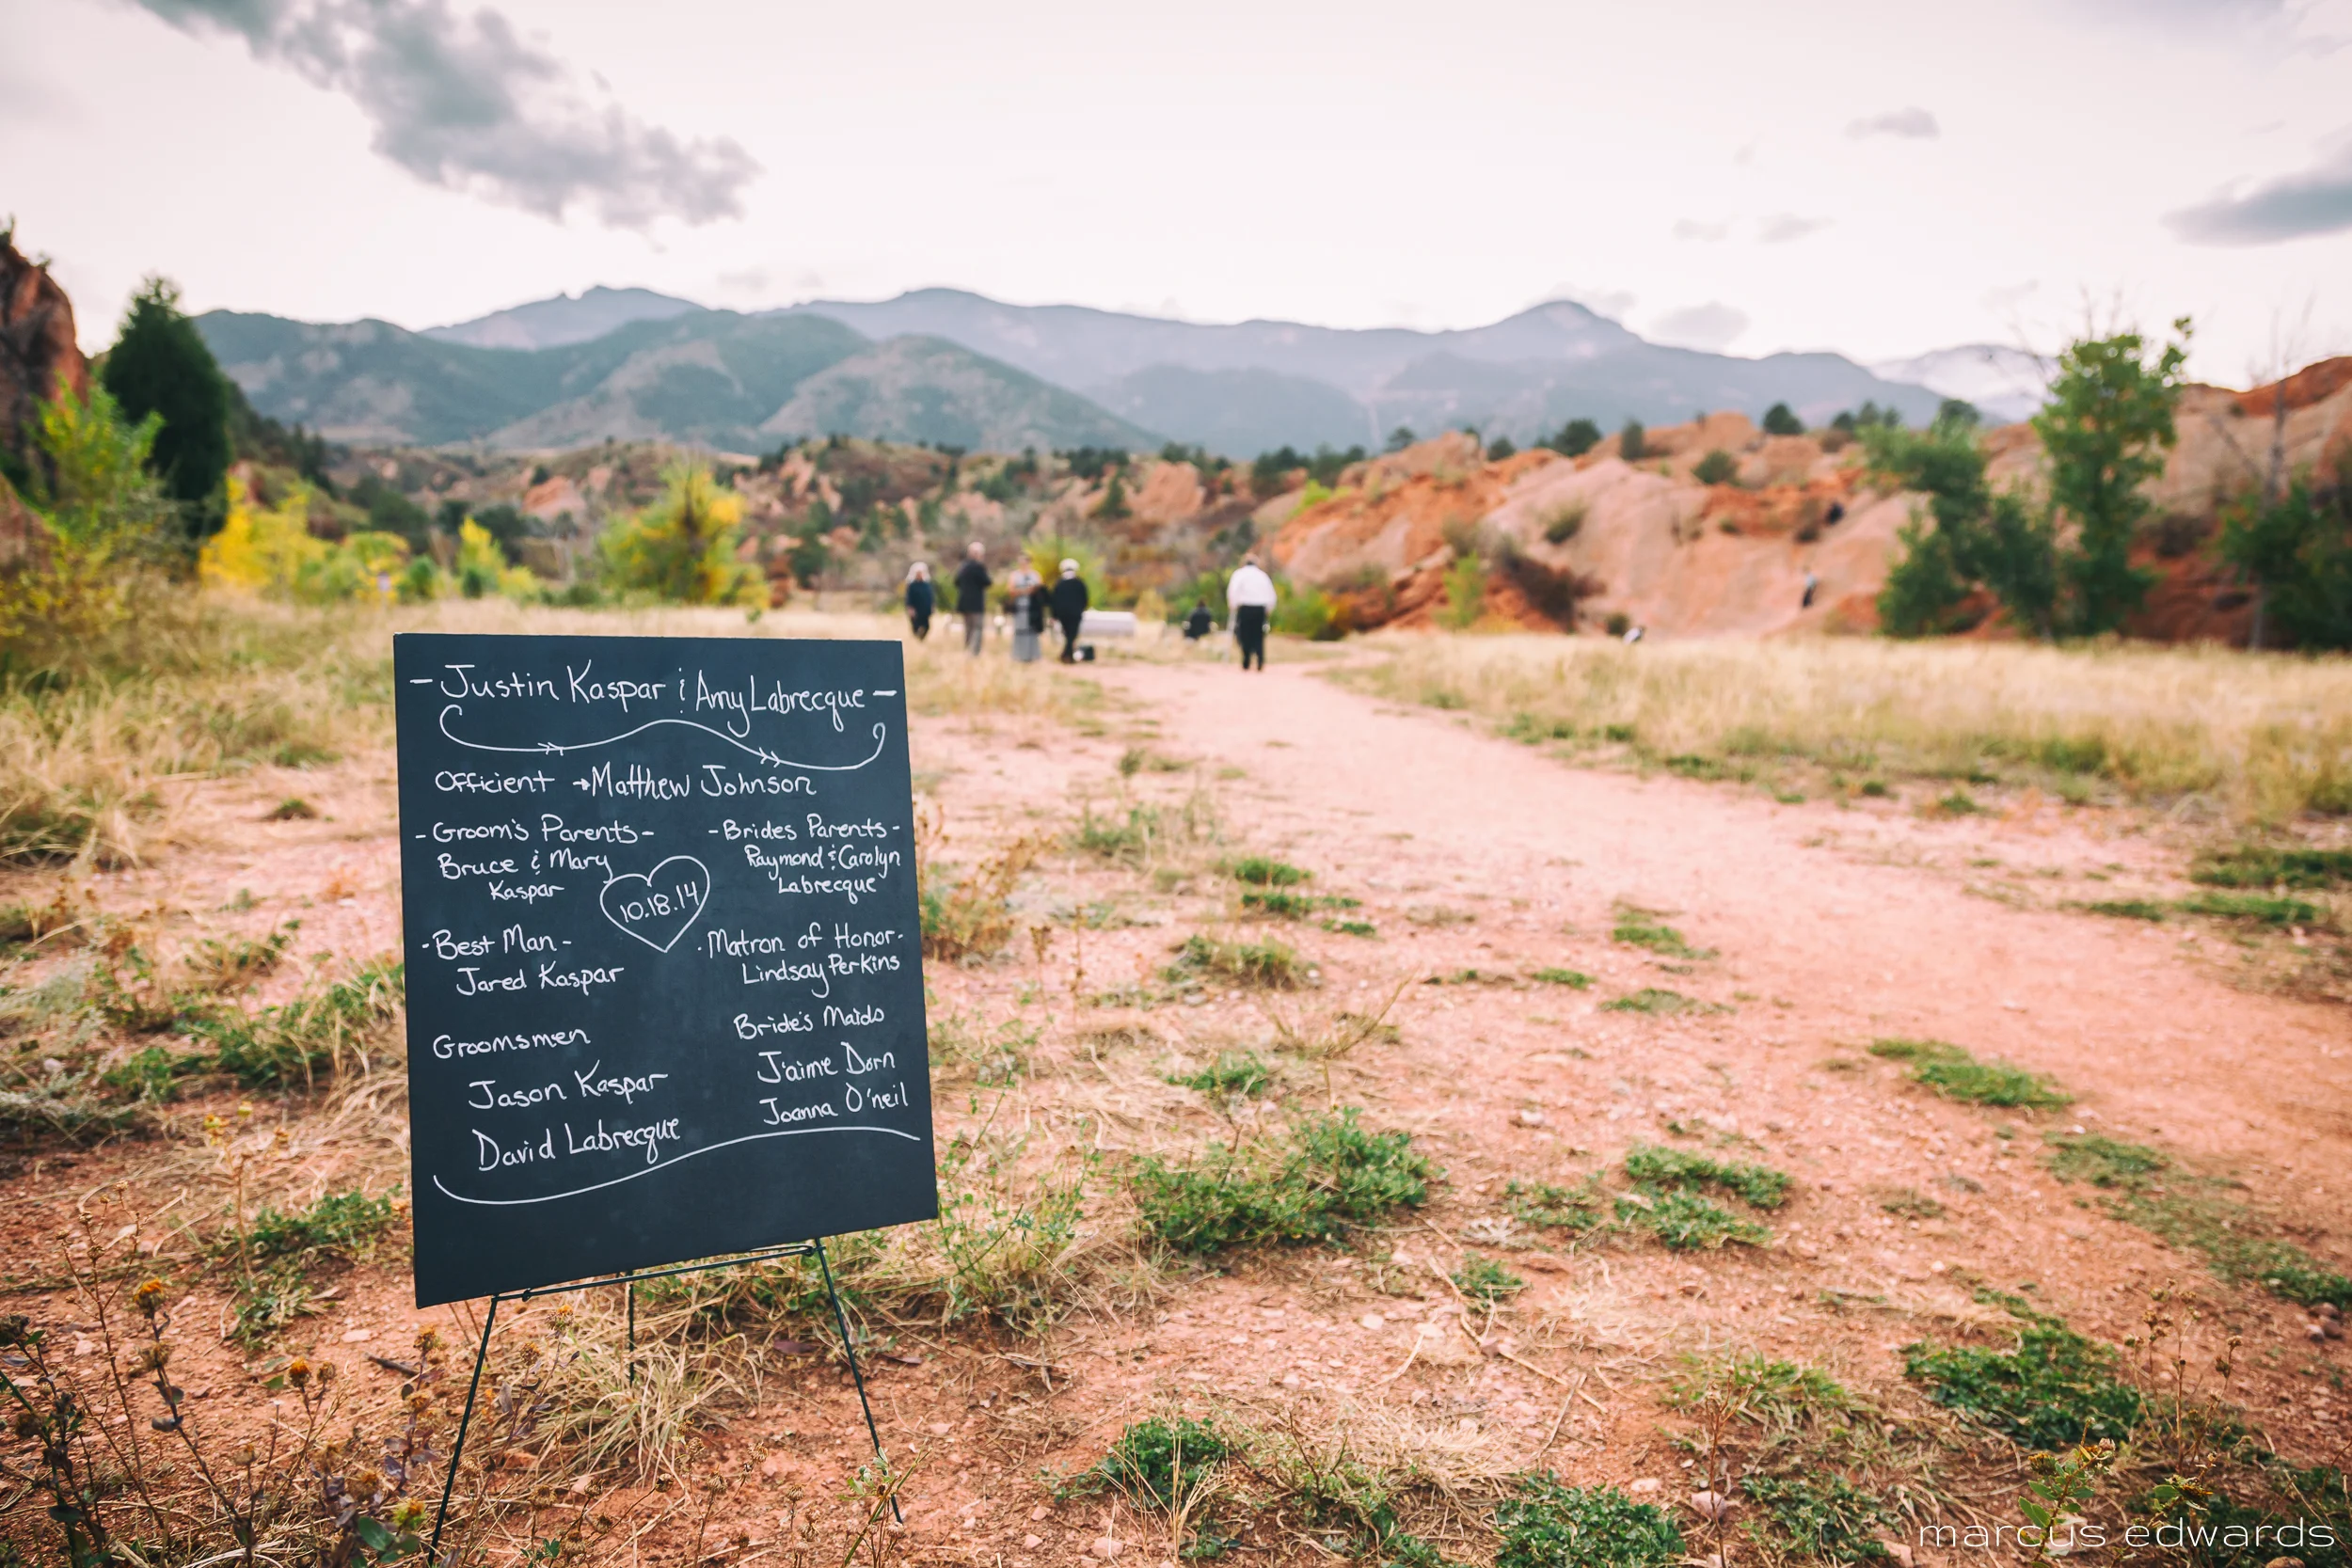 - Justin Kaspar & Amy Labrecque -
Officient → Matthew Johnson
- Groom's Parents -
Bruce & Mary
Kaspar
- Brides Parents -
Raymond & Carolyn
Labrecque
10.18.14
- Best Man -
Jared Kaspar
- Matron of Honor -
Lindsay Perkins
Groomsmen
Jason Kaspar
David Labrecque
Bride's Maids
J'aime Dorn
Joanna O'neil
marcus edwards